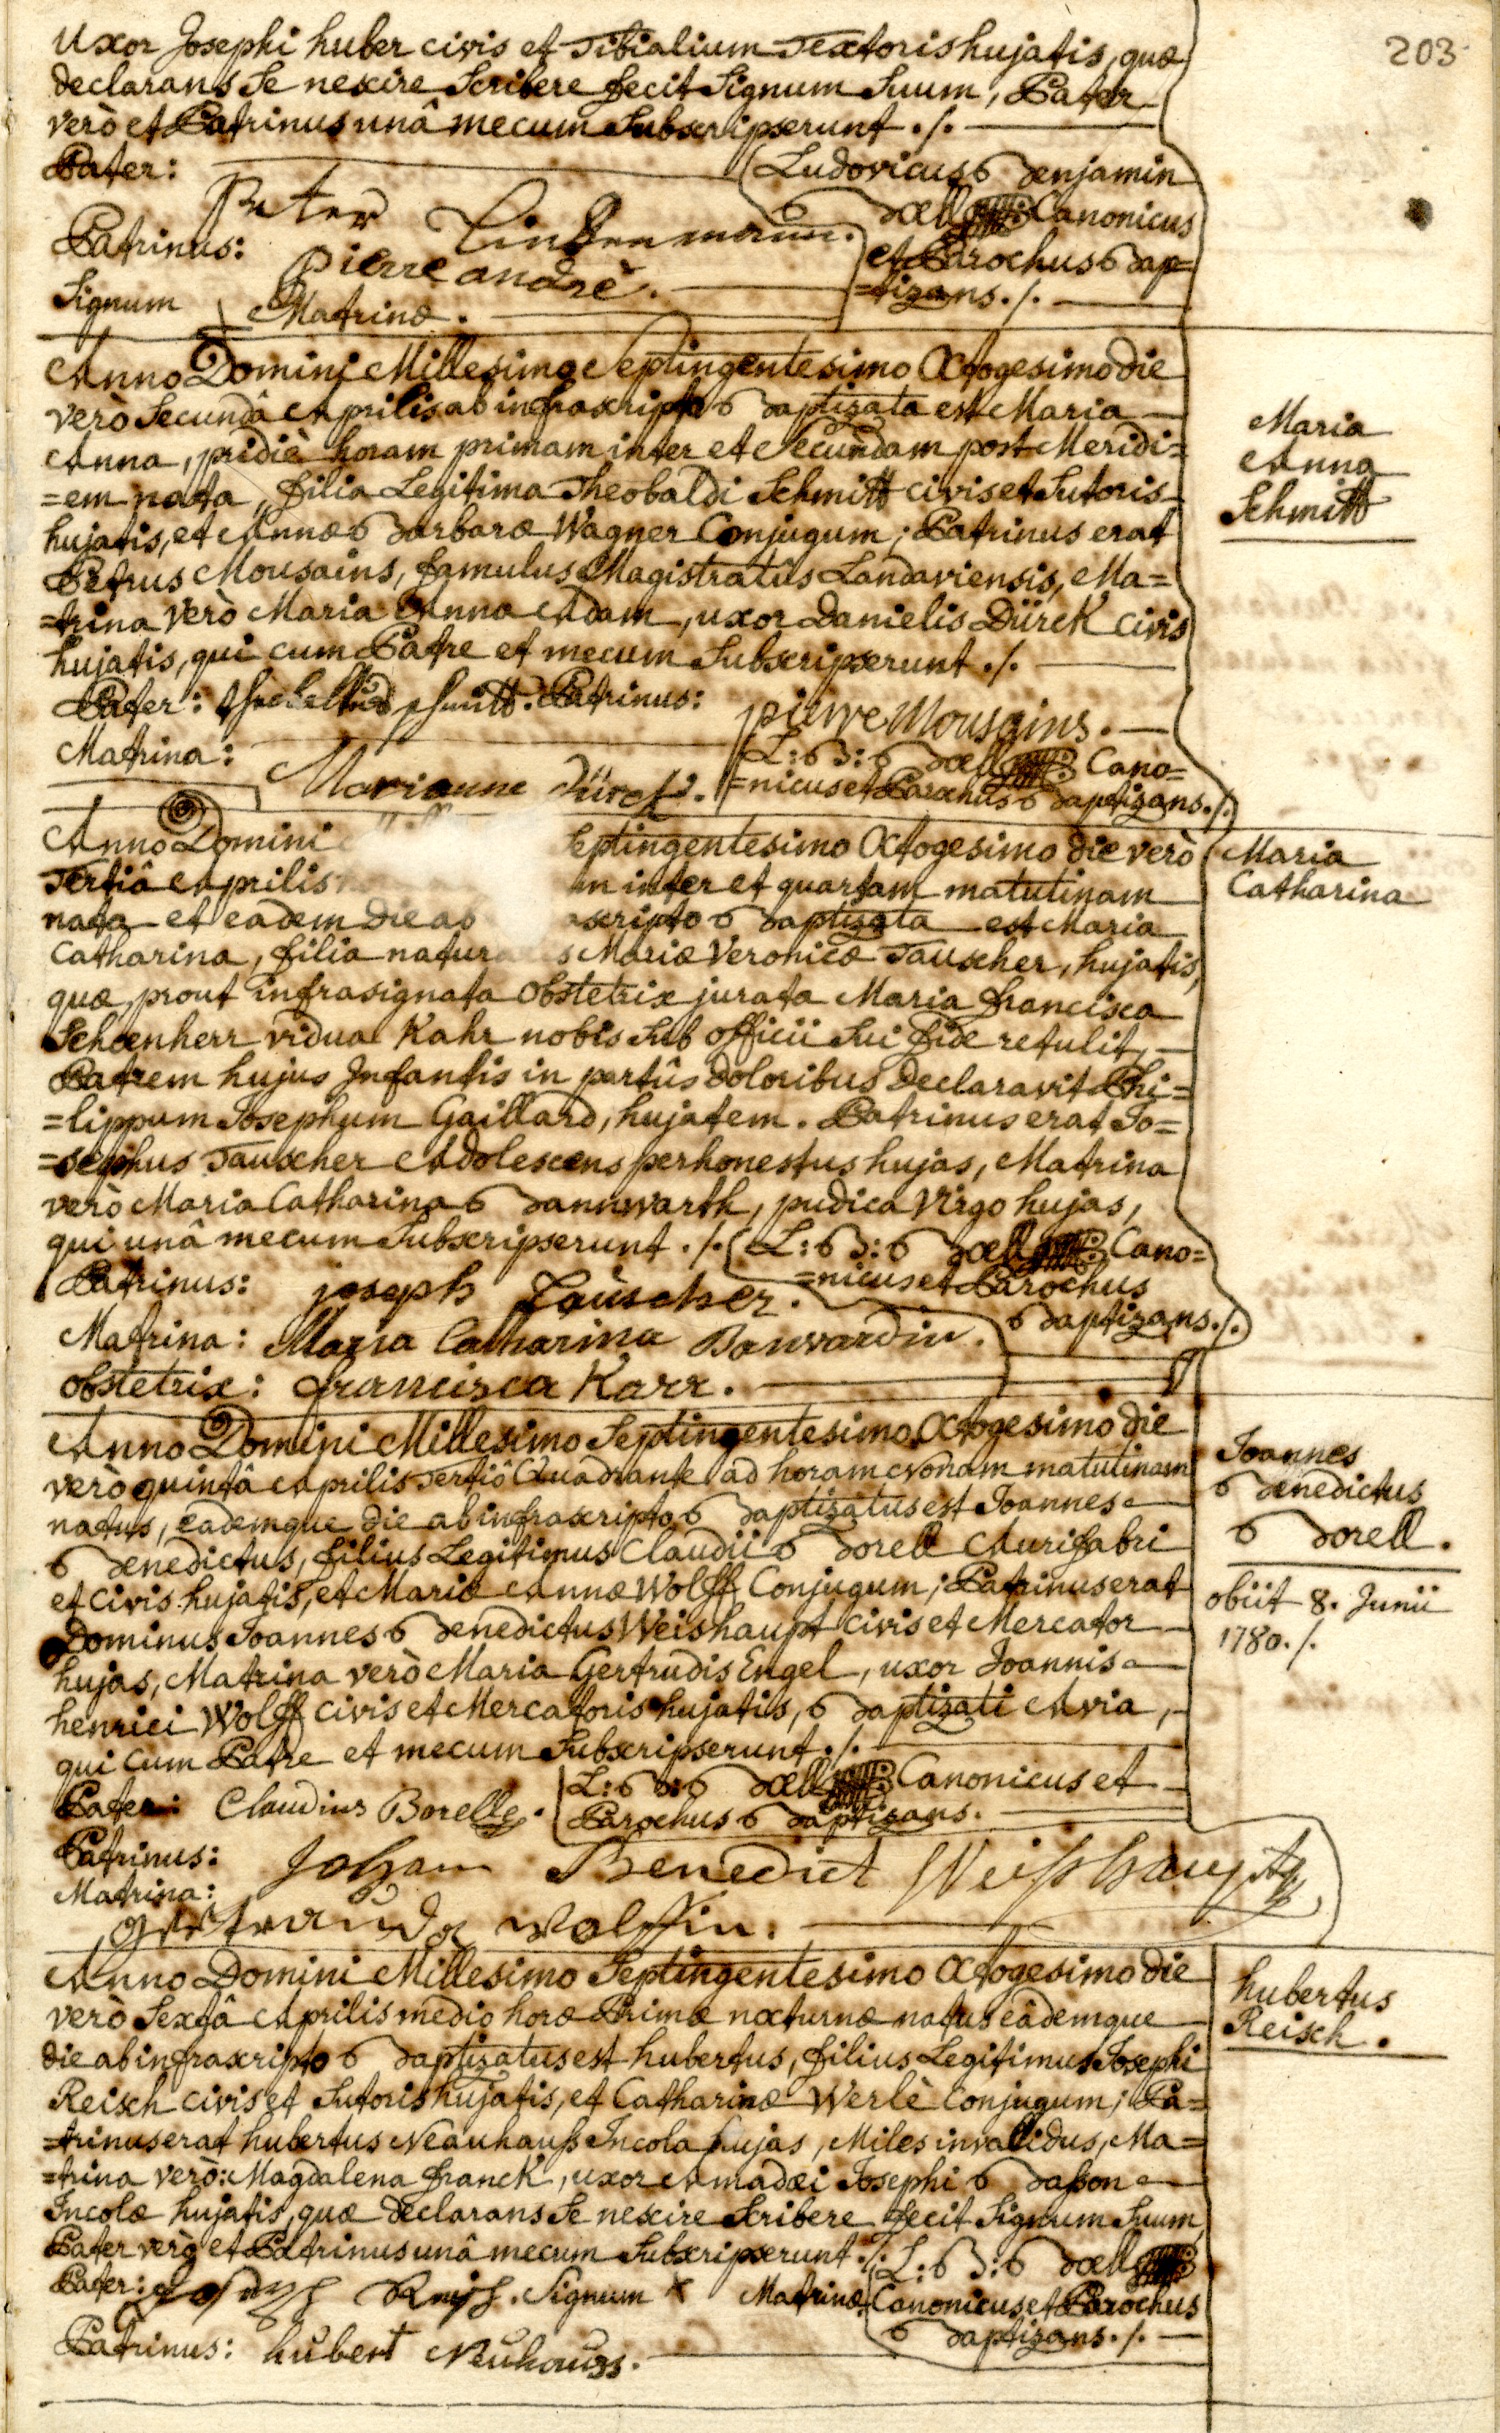 203
Uxor Josephi huber civis et Tibialium Textoris hujatis, quæ
declarans Se nescire Scribere fecit Signum Suum, Pater
verò et Patrinus unâ mecum Subscripserunt ./.
Pater: Peter Linkenmann. (Ludovicus Benjamin
Boell Canonicus
Patrinus: pierre andrè. et Parochus Bap=
Signum + Matrinæ. =tizans ./.
Anno Domini Millesimo Septingentesimo Octogesimo die
verò Secundâ Aprilis ab infrascripto Baptizata est Maria
Anna, pridiè horam primam inter et Secundam post Meridi=
=em nata, filia Legitima Theobaldi Schmitt civis et Sutoris
hujatis, et Annæ Barbaræ Wagner Conjugum; Patrinus erat
Petrus Mousains, famulus Magistratûs Landaviensis, Ma=
=trina verò Maria Anna Adam, uxor Danielis Dürck civis
hujatis, qui cum Patre et mecum Subscripserunt ./.
Maria
Anna
Schmitt
Pater: schmitt. Patrinus: pierre Mousains.
Matrina: Marianne Dürck. L: B: Boell Cano=
=nicus et Parochus Baptizans ./.
Anno Domini eptingentesimo Octogesimo die verò
Tertiâ Aprilis m inter et quartam matutinam
nata et eadem die ab ascripto Baptizata est Maria
Catharina, filia natura s Mariæ Veronicæ Tauscher, hujatis,
quæ, prout infrasignata Obstetrix jurata Maria francisca
Schoenherr vidua Kahr nobis Sub officii Sui fide retulit,
Patrem hujus Infantis in partûs doloribus declaravit Phi=
=lippum Josephum Gaillard, hujatem. Patrinus erat Jo=
=sephus Tauscher Adolescens perhonestus hujas, Matrina
verò Maria Catharina Bannwarth, pudica Virgo hujas,
qui unâ mecum Subscripserunt ./. (L: B: Boell Cano=
=nicus et Parochus
Baptizans ./.
Maria
Catharina
Patrinus: joseph Taüscher.
Matrina: Maria Catharina Banvardin.
Obstetrix: francisca Karr.
Anno Domini Millesimo Septingentesimo Octogesimo die
verò quintâ Aprilis Tertiô Quadrante ad horam Nonam matutinam
natus, eademque die ab infrascripto Baptizatus est Joannes
Benedictus, filius Legitimus Claudii Borell Aurifabri
et civis hujatis, et Mariæ Annæ Wolff Conjugum; Patrinus erat
Dominus Joannes Benedictus Weishaupt civis et Mercator
hujas, Matrina verò Maria Gertrudis Engel, uxor Joannis
henrici Wolff civis et Mercatoris hujatis, Baptizati Avia,
qui cum Patre et mecum Subscripserunt ./.
Joannes
Benedictus
Borell.
obiit 8. Junii
1780 ./.
Pater: Claudius Borelle. L: B: Boell Canonicus et
Parochus Baptizans.
Patrinus: Johann Benedict Weisshaupt
Matrina: gertrauda wolffin.
Anno Domini Millesimo Septingentesimo Octogesimo die
verò Sextâ Aprilis medio horæ Primæ nocturnæ natus eâdemque
die ab infrascripto Baptizatus est hubertus, filius Legitimus Josephi
Reisch civis et Sutoris hujatis, et Catharinæ Werlè Conjugum; Pa=
=trinus erat hubertus Neauhauß Incola hujas, Miles invalidus, Ma=
=trina verò: Magdalena franck, uxor Amadæi Josephi Baßon
Incolæ hujatis, quæ declarans Se nescire Scribere fecit Signum Suum
Pater verò et Patrinus unâ mecum Subscripserunt ./. L: B: Boell
Pater: Joseph Reisch. Signum x Matrinæ. Canonicus et Parochus
Baptizans ./.
Patrinus: hubert Neuhauss.
hubertus
Reisch.